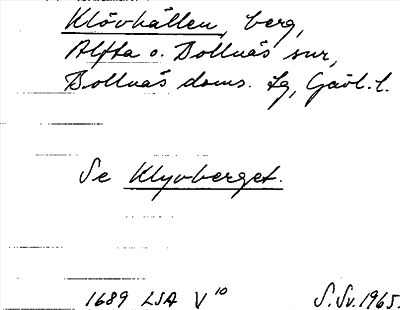 Klövhällen, berg,
Alfta o. Bollnäs snr,
Bollnäs doms. lg, Gävl. l.
Se Klyvberget.
1689 LSA V 10 S. Sv. 1965.